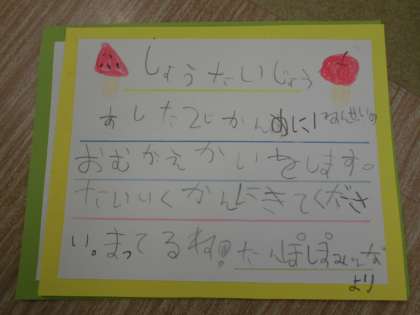 しょうたいじょう
あした2じかんめに1ねんせいの
おむかえかいをします。
たいいくかんにきてくださ
い。まってるね! たんぽぽみんな
より